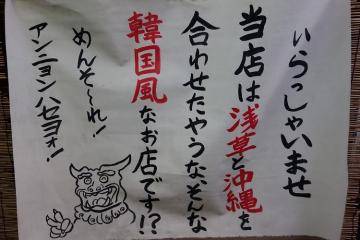 いらっしゃいませ
当店は浅草と沖縄を
合わせたやうなそんな
韓国風なお店です!?
めんそ〜れ!
アンニョンハセヨォ!